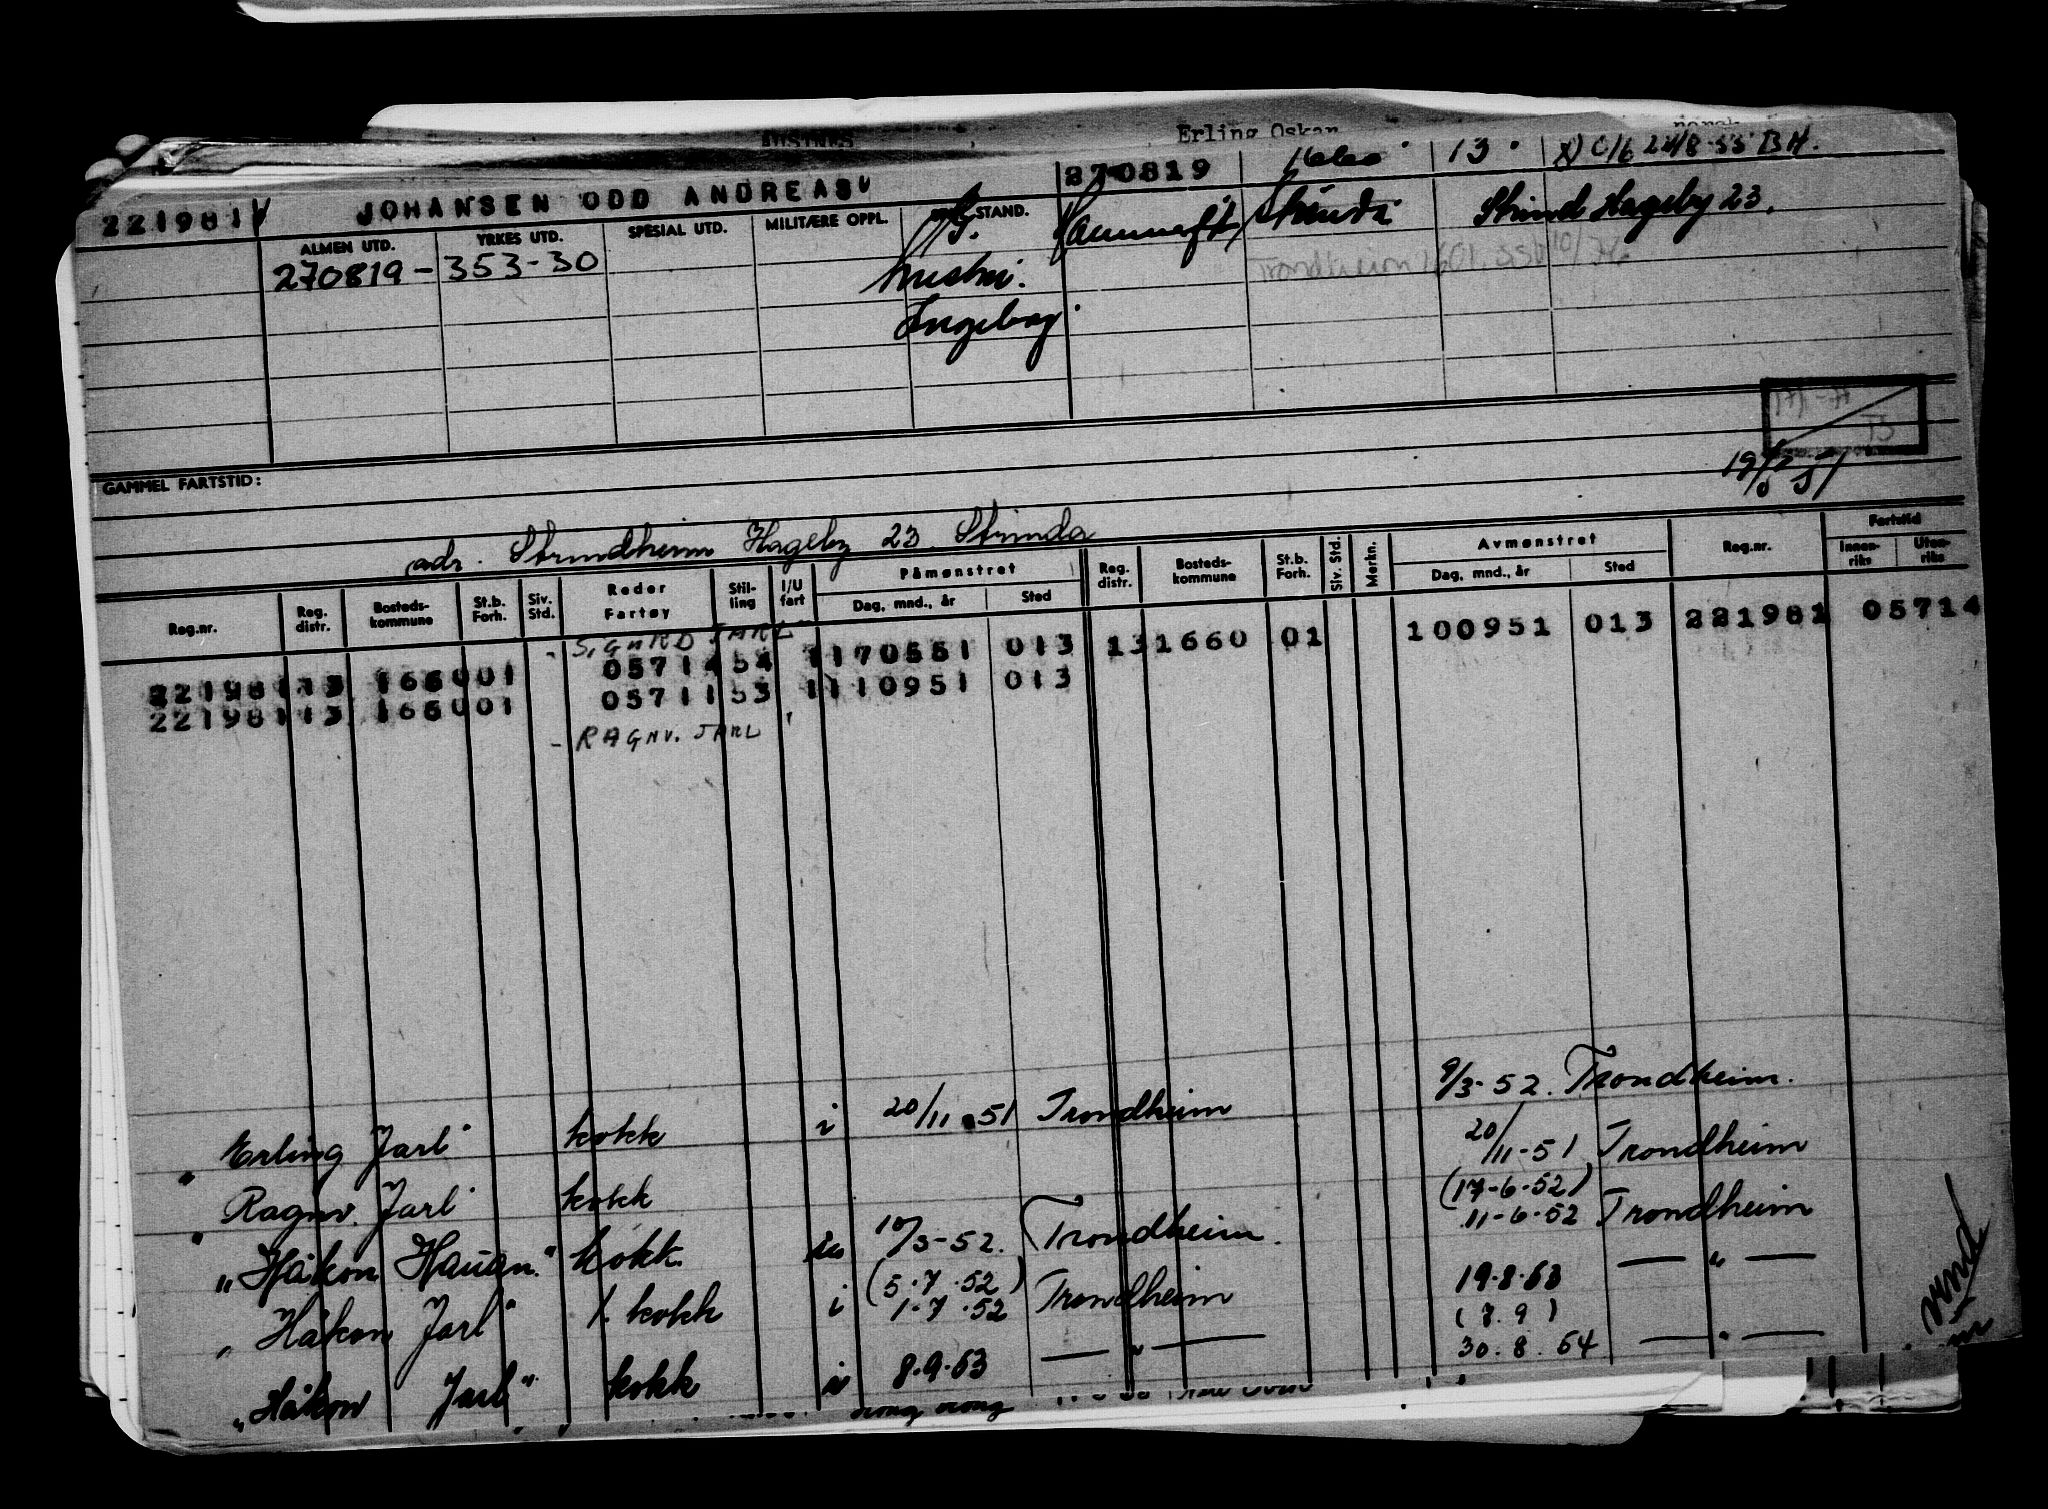 Erling Oskar
221981 JOHANSEN ODD ANDREAS 270819 13 22/8-55 BH.
ALMEN UTD. YRKES UTD. SPESIAL UTD. MILITÆRE OPPL. STAND. Strinda Strind Hageby 23.
270819- 353-30 hustru. Trondheim
Ingeborg
GAMMEL FARTSTID:
adr. Strindheim Hageby 23. Strinda
Reg.nr. Reg. distr. Bosteds-kommune St.b. Forh. Siv. Std. Reder Fartøy Stil-ling I/U fart Påmønstret Dag, mnd., år Sted Reg. distr. Bosteds-kommune St.b. Forh. Siv. Std. Merkn. Avmønstret Dag, mnd., år Sted Reg.nr. Fartstid Innen-riks Uten-riks
SIGURD JARL
221981 13 1660 01 05714 54 1 170551 013 13 1660 01 100951 013 221981 05714
221981 13 1660 01 05711 53 1 110951 013
- RAGNV. JARL
" Erling Jarl" kokk i 20/11.51 Trondheim 9/3-52. Trondheim.
" Ragnv. Jarl" kokk 20/11-51 Trondheim
(17-6-52)
"Håkon Hauan." kokk. 10/3-52. Trondheim. 11-6-52 Trondheim
(5.7.52)
"Håkon Jarl" 1. kokk i 1.7.52 Trondheim 19.8.53 — " —
(7.9)
"Håkon Jarl" kokk i 8.9.53 — " — 30.8.54 — " —